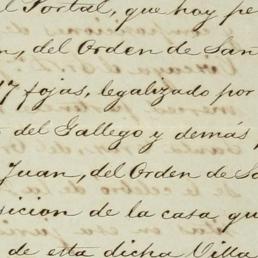 l Portal, que hay pe
n, del Orden de San
17 fojas, legalizado por
del Gallego y demás
Juan, del Orden de Sa
sicion de la casa qu
de esta dicha Villa